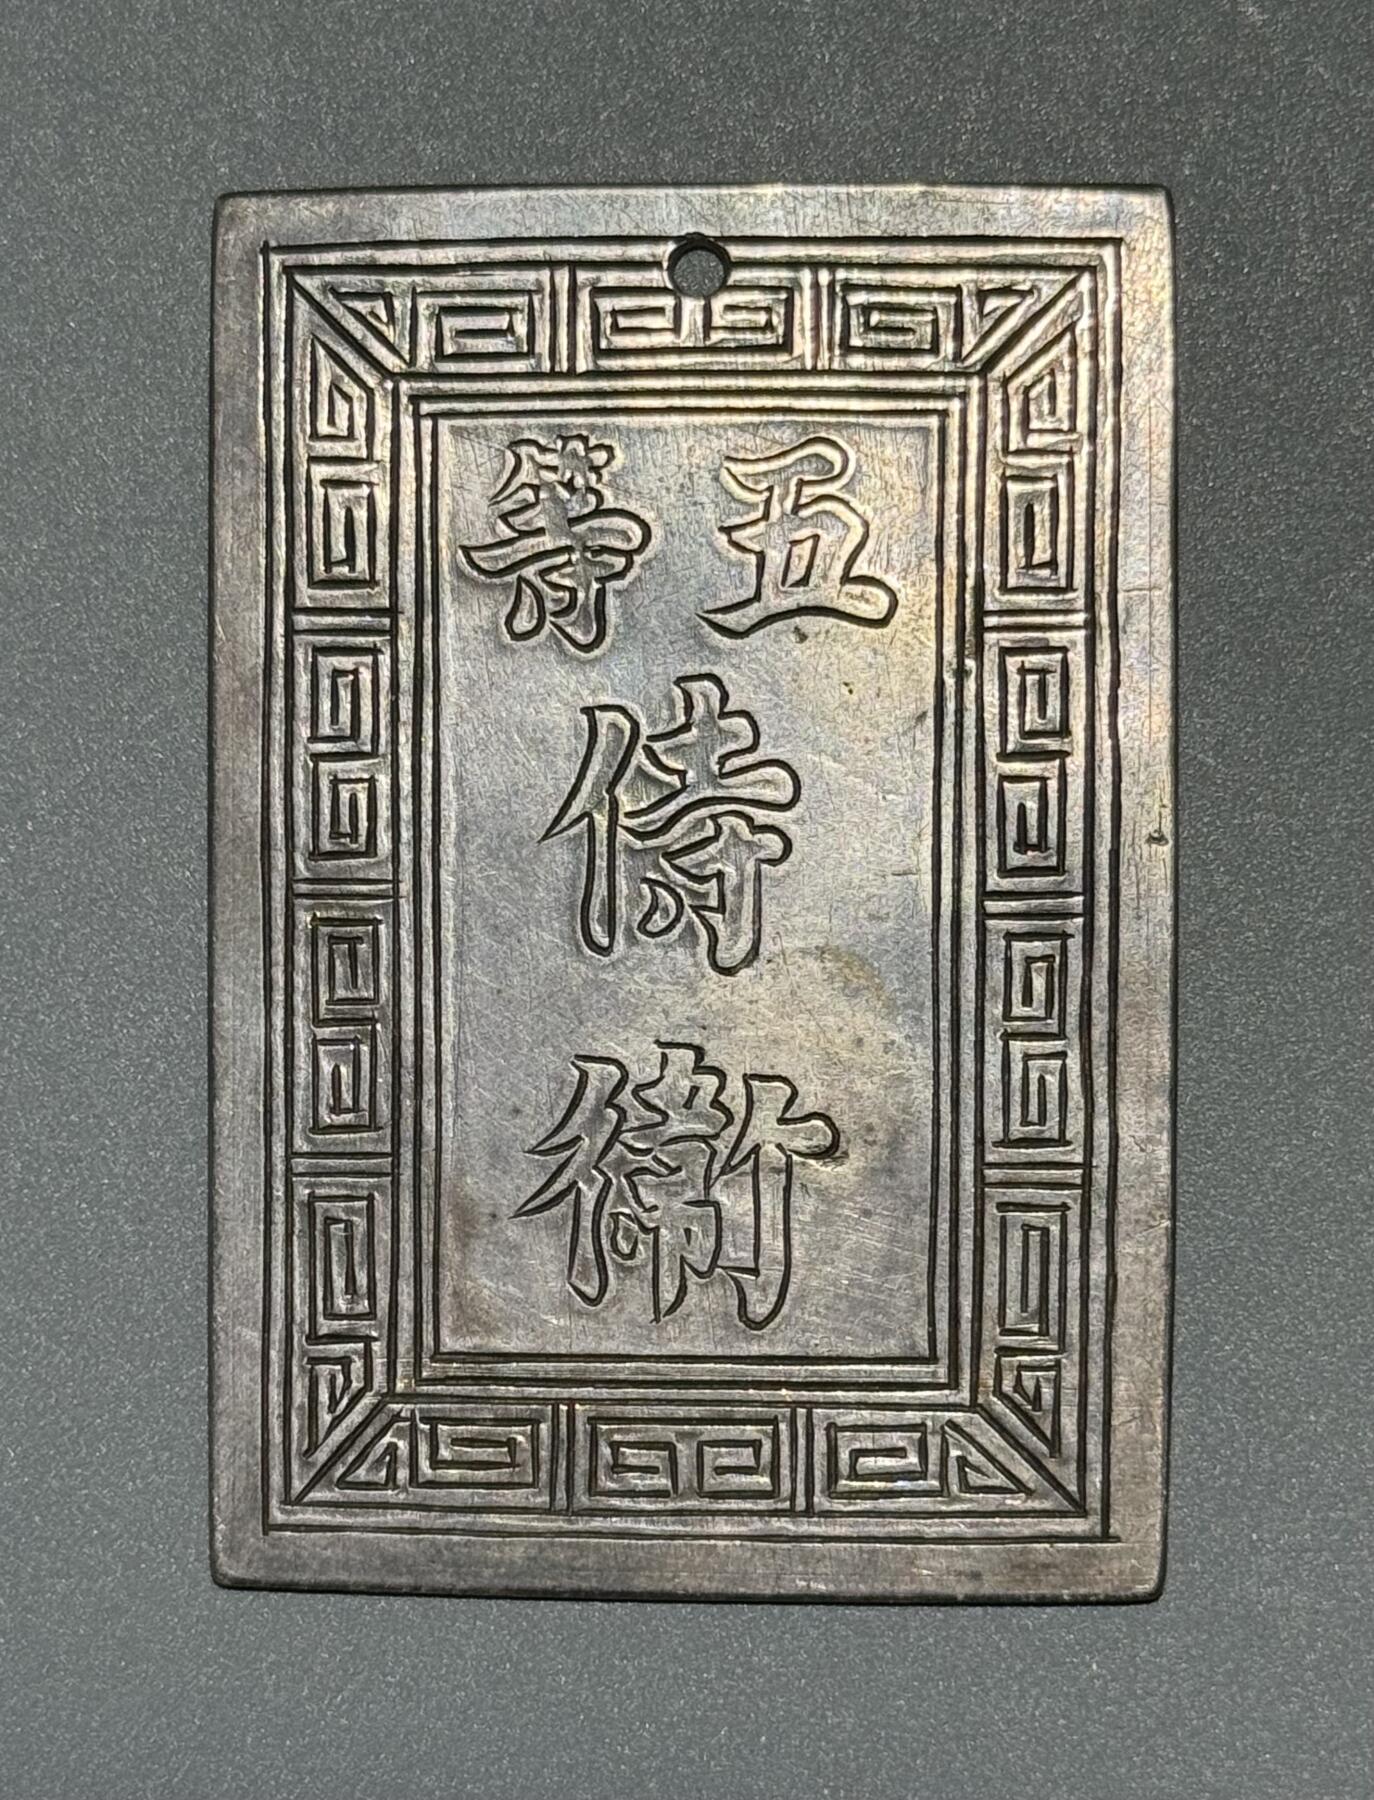 五等
侍
衛